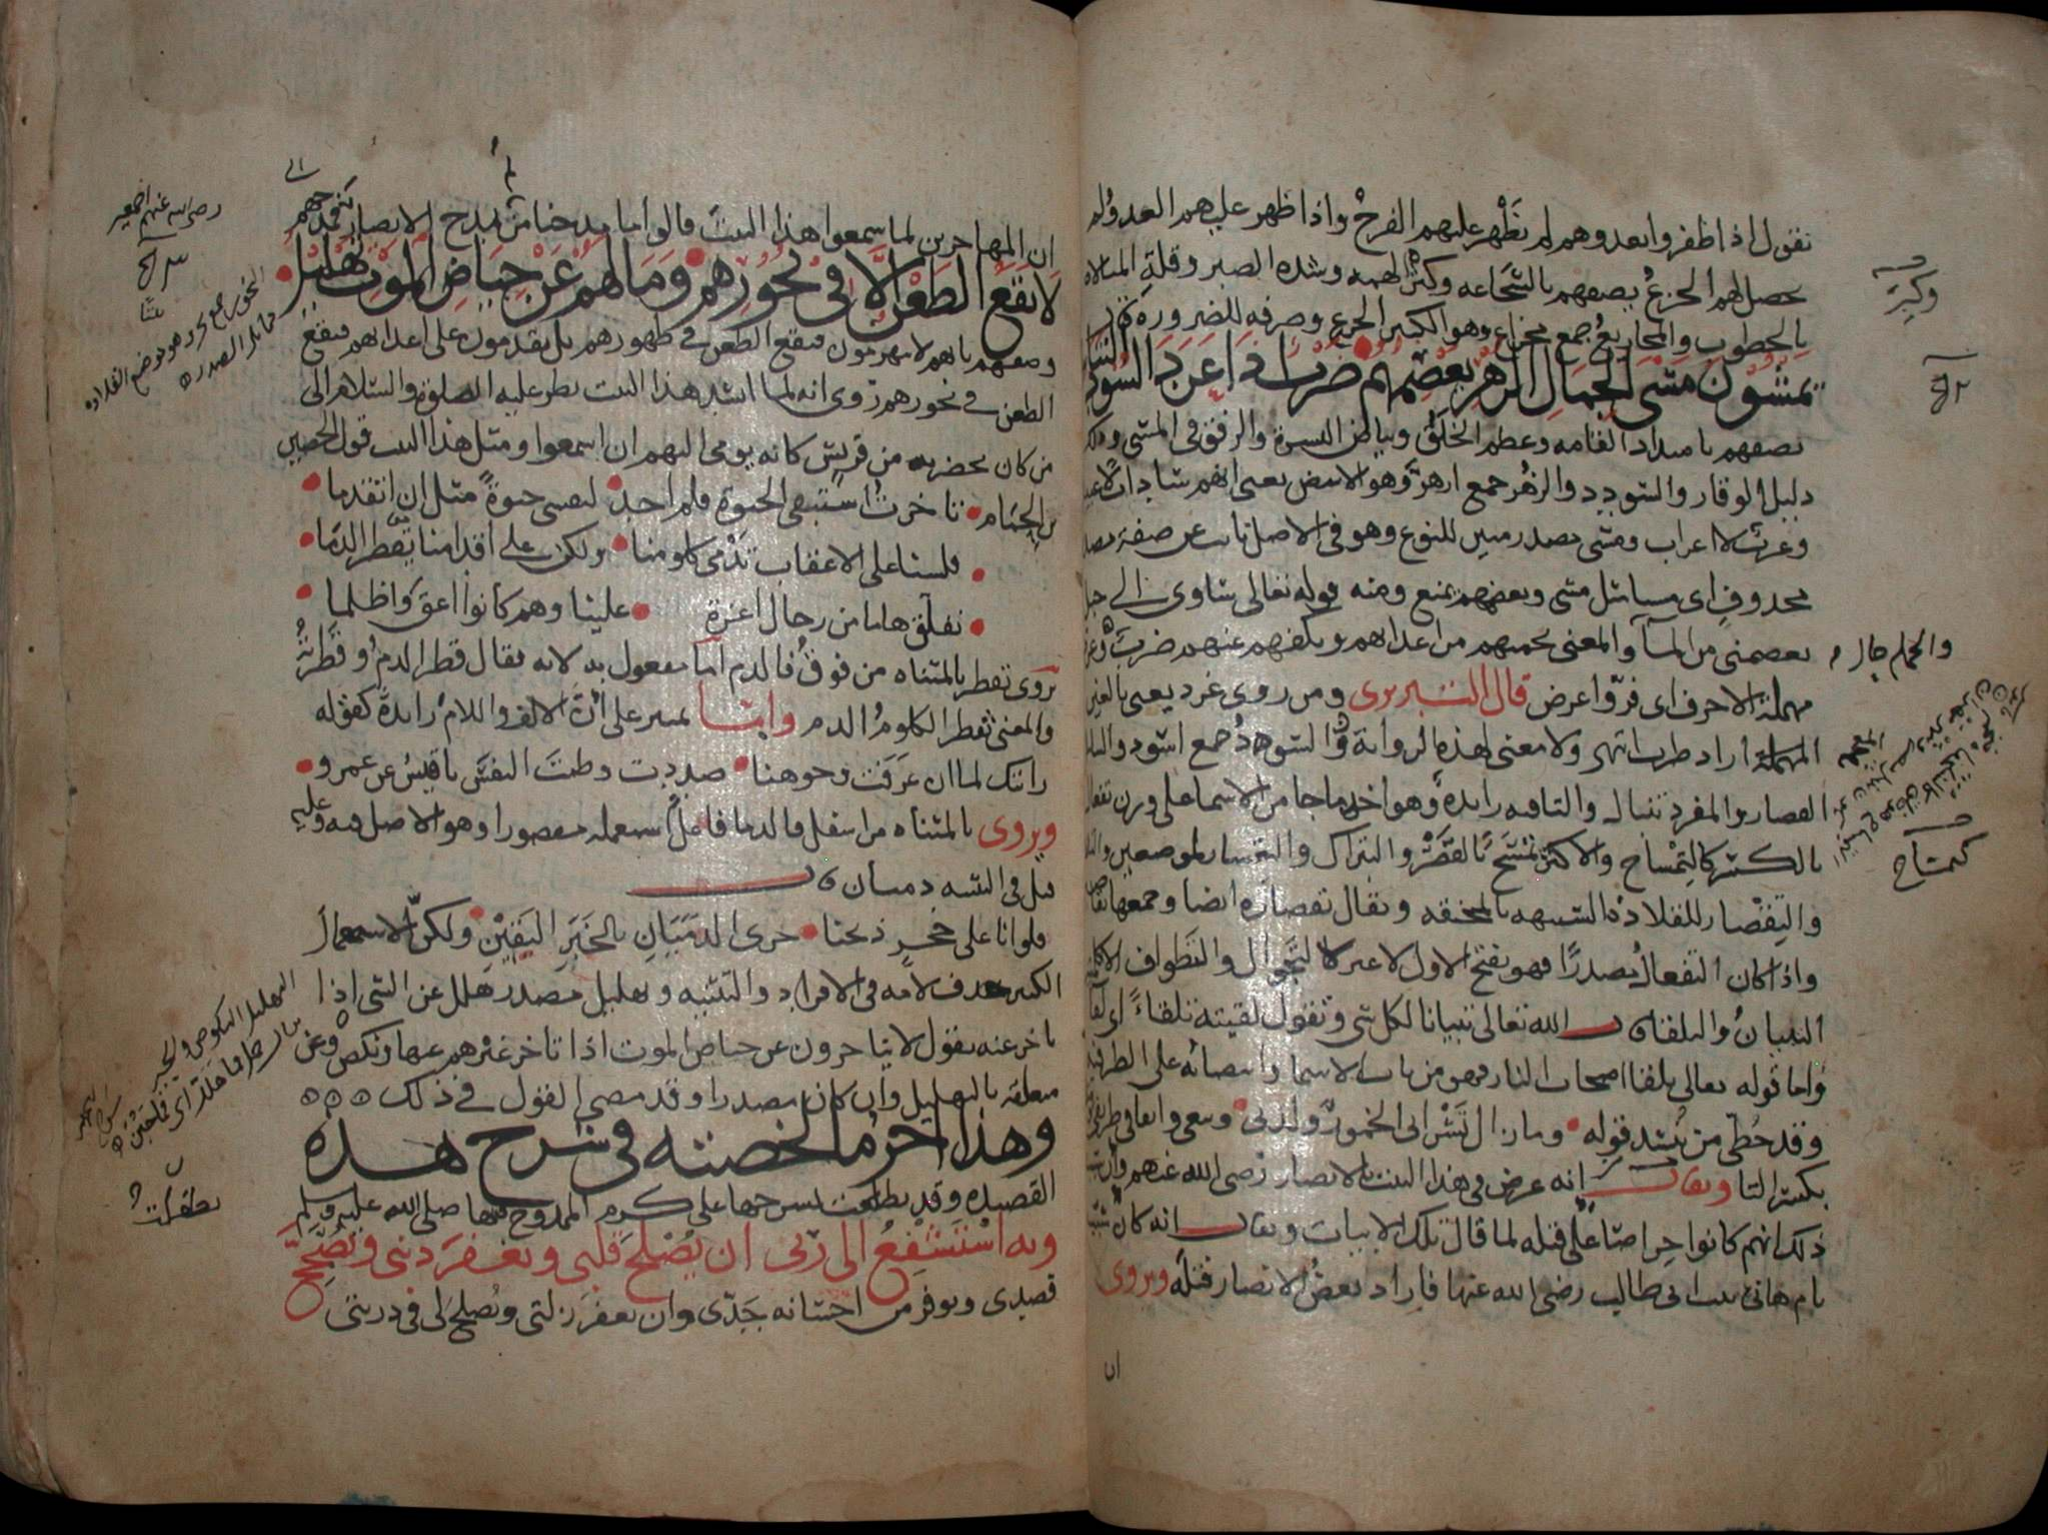 نقول اذا ظفروا بعدوهم لم يظهر عليهم الفرح واذا ظهر عليهم العدو لم
يحصل لهم الجزع يصفهم بالشجاعه وكبر الهمه وشدة الصبر وقلة المبالاه
بالخطوب والمجازيع جمع مجزاع وهو الكثير الجزع وصرفه للضرورة
يمشون مشي الجمال الزهر يعصمهم ضرب اذا عرد السود
يصفهم بامتداد القامه وعظم الخلق وبياض البشرة والرفق في المشي وذلك
دليل الوقار والسودد والزهر جمع ازهر وهو الابيض يعني انهم سادات لا عبيد
وعرب لا اعراب ومشي مصدر مبين للنوع وهو في الاصل نايب عن صفة مصدر
محذوف اي مشيا مثل مشي وبعضهم يمنع ومنه قوله تعالى ساوي الى جبل
يعصمني من المآ والمعنى يحميهم من اعدايهم ويكفهم عنهم ضرب وعرد
مهملة الاحرف اي فر واعرض قال التبريزي ومن روى غرد يعني بالغين
المهملة اراد طرب انتهى ولا معنى لهذه الرواية والسود جمع اسود والتنابيل
القصار والمفرد تنبال والتا فيه زايدة وهو احد ما جا من الاسما على وزن تفعال
بالكسر كالتمساح والاكثر تمسح بالقصر والتبراك والتعشار لموضعين
والتقصار للقلادة الشبيهه بالمخنقه ويقال تقصاره ايضا وجمعها تقاصير
واذا كان التفعال مصدرا فهو بفتح الاول لا غير كالتجوال والتطواف الا كلمتين
التبيان والتلقا قال الله تعالى تبيانا لكل شي وتقول لقيته تلقاء اي لقا
واما قوله تعالى تلقا اصحاب النار فهو من باب الاسما وانتصابه على الظرفية
وقد خطئ من ينشد قوله وما زال تشرابي الخمور ولذتي وبيعي وانفاقي طريفي
بكسر التا ويقال انه عرض في هذا البيت بالانصار رضي الله عنهم
ذلك انهم كانوا حراصا على قتله لما قال تلك الابيات ويقال انه كان شبب
بام هانئ بنت ابي طالب رضي الله عنها فاراد بعض الانصار قتله ويروى
ان
وكثرة
والجملة حال
كتمساح
ان المهاجرين لما سمعوا هذا البيت قالوا ما مدحنا من مدح الانصار فمدحهم
لا يقع الطعن الا في نحورهم وما لهم عن حياض الموت تهليل
وصفهم بانهم لا ينهزمون فيقع الطعن في ظهورهم بل يقدمون على اعدايهم فيقع
الطعن في نحورهم روى انه لما انشد هذا البيت نظر عليه الصلوة والسلام الى
من كان بحضرته من قريش كانه يومي اليهم ان اسمعوا ومثل هذا البيت قول الحصين
بن الحمام تاخرت استبقي الحيوة فلم اجد لنفسي حيوة مثل ان اتقدما
فلسنا على الاعقاب تدمى كلومنا ولكن على اقدامنا يقطر الدما
نفلق هاما من رجال اعزة علينا وهم كانوا اعق واظلما
يروى تقطر بالمثناه من فوق فالدم اما مفعول به لانه يقال قطر الدم وقطرته
والمعنى تقطر الكلوم الدم واما تمييز على ان الالف واللام زايدة كقوله
رايتك لما ان عرفت وجوهنا صددت وطبت النفس يا قيس عن عمرو
ويروى بالمثناه من اسفل فالدما فاعل استعمله مقصورا وهو الاصل فيه وعليه
قيل في التثنيه دميان قال
فلو انا على حجر ذبحنا جرى الدميان بالخبر اليقين ولكن الاستعمال
الكثير حذف لامه في الافراد والتثنيه وتهليل مصدر هلل عن الشي اذا
تاخر عنه يقول لا يتاخرون عن حياض الموت اذا تاخر غيرهم عنها ونكص وعن
متعلقه بالتهليل وان كان مصدرا وقد مضى القول في ذلك
وهذا اخر ما لخصته في شرح هذه
القصيده وقد تطفلت بشرحها على كرم الممدوح بها صلى الله عليه وسلم
وبه استشفع الى ربي ان يصلح قلبي ويغفر ذنبي ويصحح
قصدي ويوفر من احسانه جدي وان يغفر زلتي ويصلح لي في ذريتي
رضي الله عنهم اجمعين
تطفلت